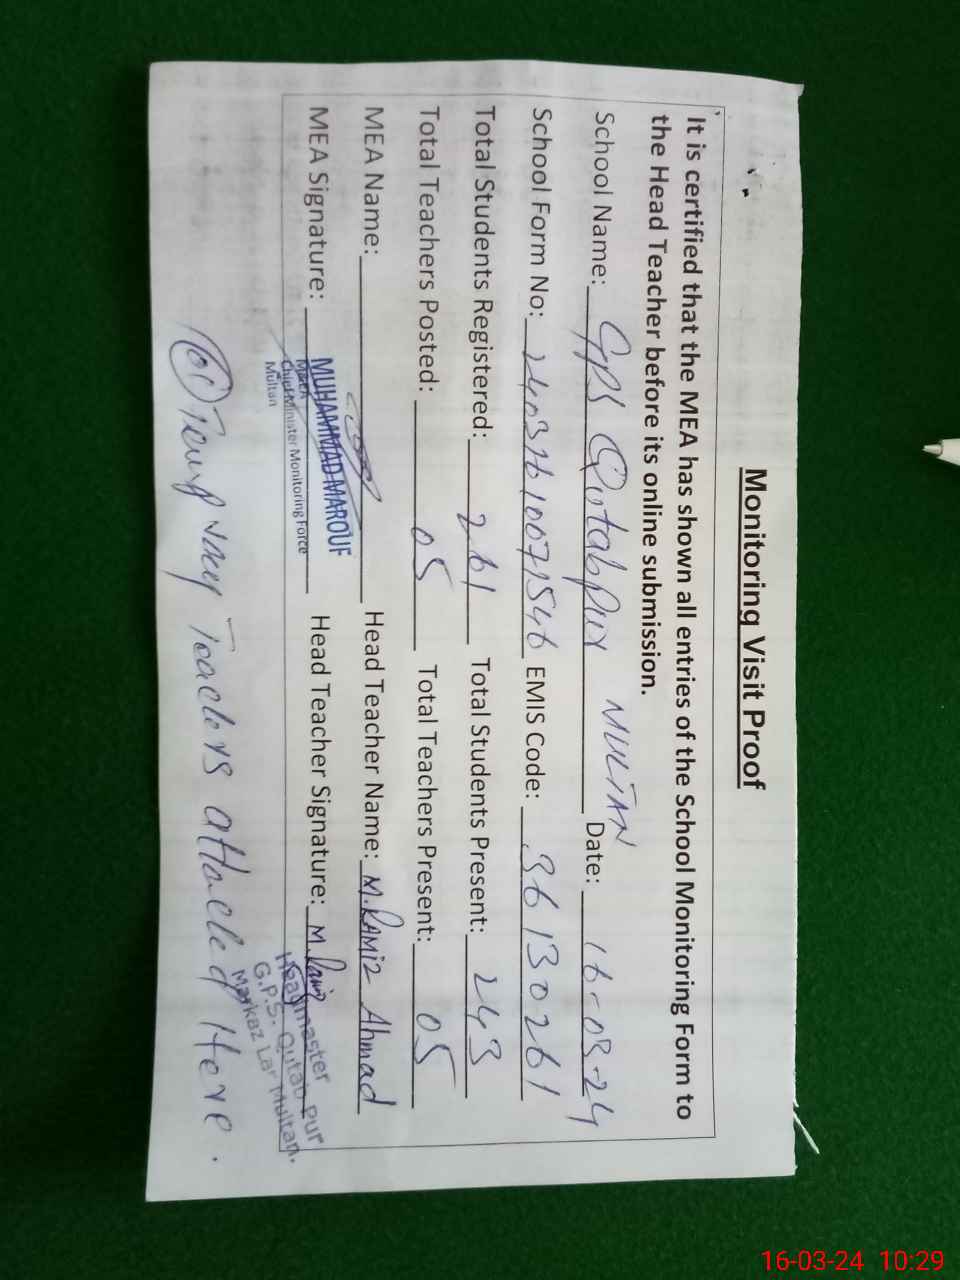 Monitoring Visit Proof
It is certified that the MEA has shown all entries of the School Monitoring Form to
the Head Teacher before its online submission.
School Name: GPS Qutabpur MULTAN Date: 16-03-24
School Form No: EMIS Code: 36130261
Total Students Registered: 261 Total Students Present: 243
Total Teachers Posted: 05 Total Teachers Present: 05
MEA Name: Head Teacher Name: M.RAMiz Ahmad
MEA Signature: MUHAMMAD MAROUF Head Teacher Signature: M.Ramiz
MEA
Chief Minister Monitoring Force
Multan
Headmaster
G.P.S. Qutab pur
Markaz Lar Multan.
Teachers attached Here.
16-03-24 10:29